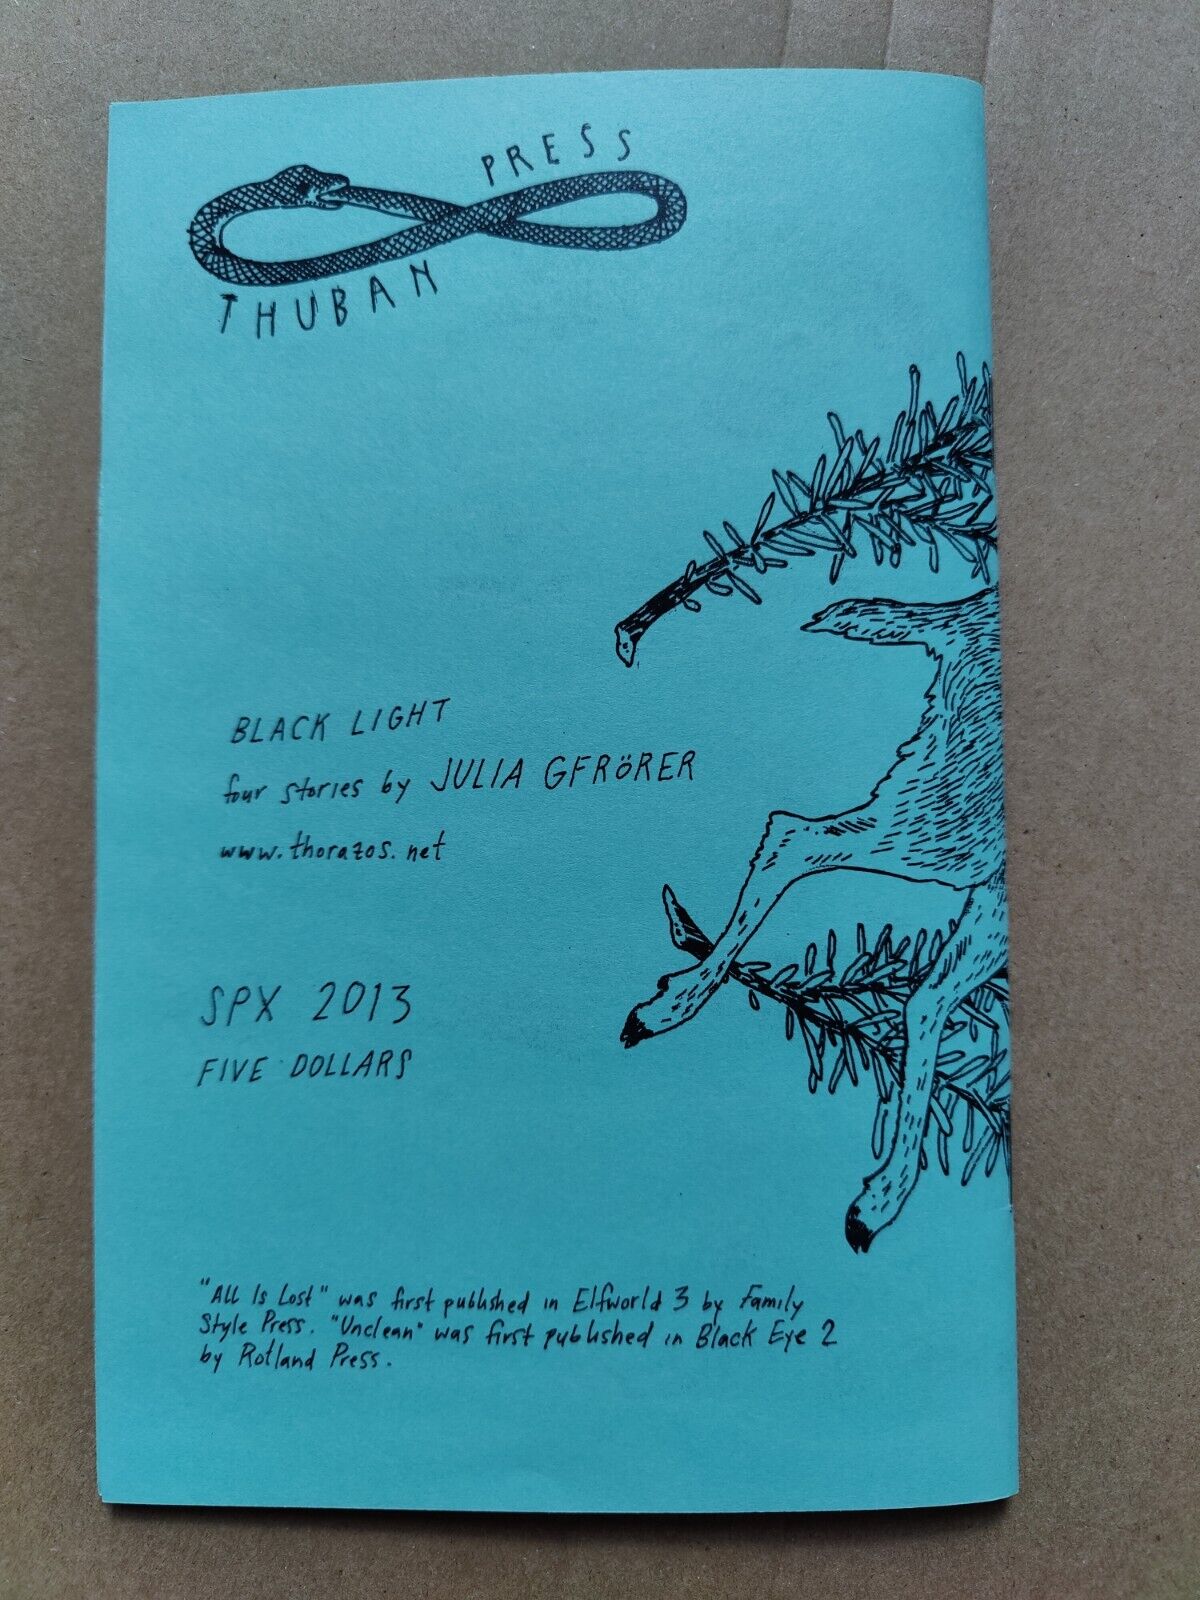 PRESS
THUBAN
BLACK LIGHT
four stories by JULIA GFRÖRER
www.thorazos.net
SPX 2013
FIVE DOLLARS
"All Is Lost" was first published in Elfworld 3 by Family
Style Press. "Unclean" was first published in Black Eye 2
by Rotland Press.